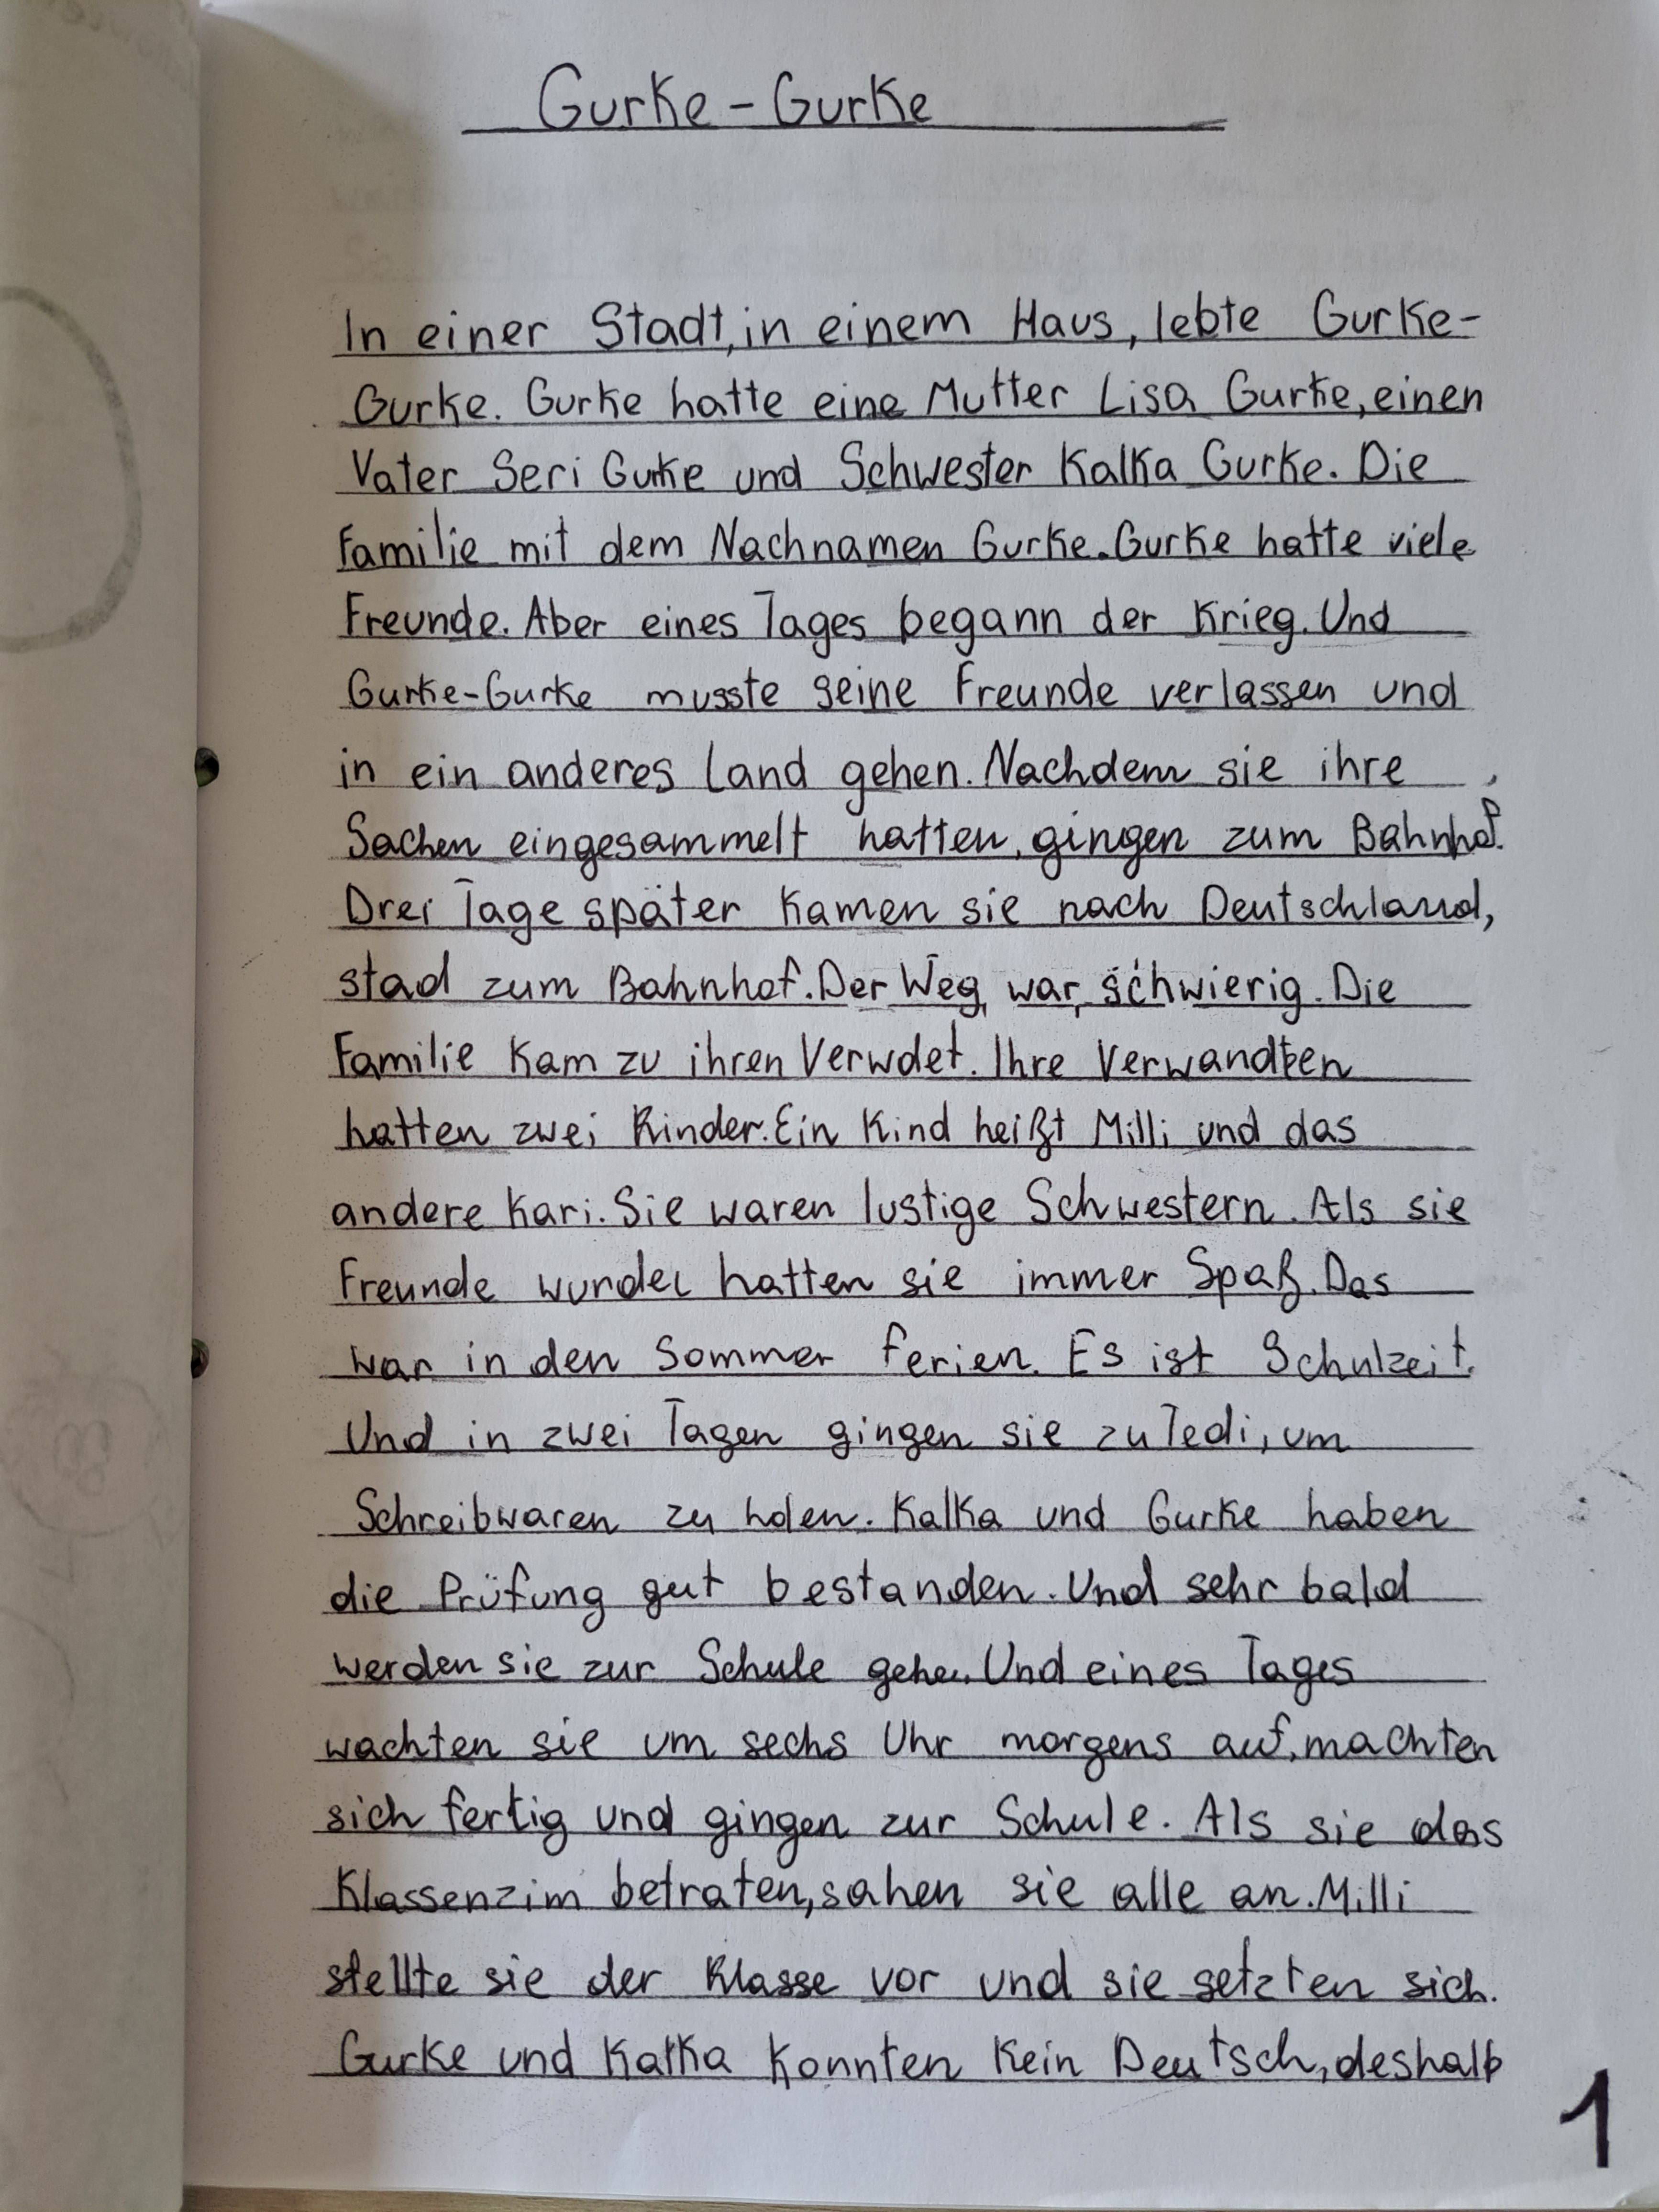 Gurke-Gurke
In einer Stadt, in einem Haus, lebte Gurke-
Gurke. Gurke hatte eine Mutter Lisa Gurke, einen
Vater Seri Gurke und Schwester Kalka Gurke. Die
Familie mit dem Nachnamen Gurke. Gurke hatte viele
Freunde. Aber eines Tages begann der Krieg. Und
Gurke-Gurke musste seine Freunde verlassen und
in ein anderes Land gehen. Nachdem sie ihre
Sachen eingesammelt hatten, gingen zum Bahnhof.
Drei Tage später kamen sie nach Deutschland,
stad zum Bahnhof. Der Weg war schwierig. Die
Familie kam zu ihren Verwdet. Ihre Verwandten
hatten zwei Kinder. Ein Kind heißt Milli und das
andere Kari. Sie waren lustige Schwestern. Als sie
Freunde wurden hatten sie immer Spaß. Das
war in den Sommer ferien. Es ist Schulzeit.
Und in zwei Tagen gingen sie zu Tedi, um
Schreibwaren zu holen. Kalka und Gurke haben
die Prüfung gut bestanden. Und sehr bald
werden sie zur Schule gehen. Und eines Tages
wachten sie um sechs Uhr morgens auf, machten
sich fertig und gingen zur Schule. Als sie das
Klassenzim betraten, sahen sie alle an. Milli
stellte sie der Klasse vor und sie setzten sich.
Gurke und Kalka konnten kein Deutsch, deshalb
1